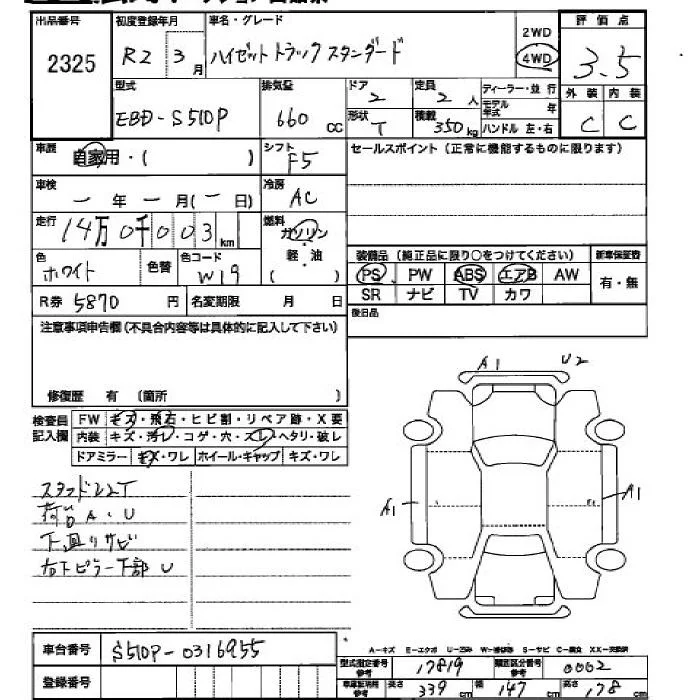 出品番号 初度登録年月 車名・グレード 評価点
2325 R2 3月 ハイゼットトラックスタンダード 2WD 4WD 3.5
型式 排気量 ドア 定員 ディーラー・並行 外装 内装
EBD-S510P 660cc 2 2人 モデル年式 年 C C
形状 T 積載 350kg ハンドル 左・右
車歴 自家用・( ) シフト F5 セールスポイント(正常に機能するものに限ります)
車検 ー年ー月(ー日) 冷房 AC
走行 14万0千003km 燃料 ガソリン・軽・油 ( )
色 ホワイト 色替 色コード W19
装備品(純正品に限り○をつけてください) 新車保証書
PS PW ABS エアB AW 有・無
SR ナビ TV カワ
R券 5870円 名変期限 月 日 後日品
注意事項申告欄(不具合内容等は具体的に記入して下さい)
修復歴 有 (箇所 )
検査員記入欄 FW キズ・飛石・ヒビ割・リペア跡・X要
内装 キズ・汚レ・コゲ・穴・スレ・ヘタリ・破レ
ドアミラー キズ・ワレ ホイール・キャップ キズ・ワレ
A1 U2
A1 A1
スタッドレスT
荷台A・U
下廻りサビ
右下ピラー下部U
A-キズ E-エクボ U-凹み W-補修跡 S-サビ C-腐食 XX-交換済
車台番号 S510P-0316955
型式指定番号 17819 類別区分番号 0002
登録番号
長さ 339cm 幅 147cm 高さ 178cm